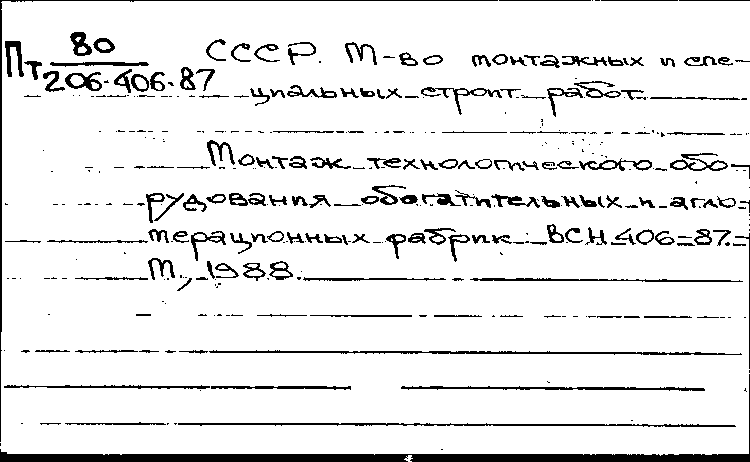 Пт 80/206.406.87 СССР. М-во монтажных и спе-
циальных строит. работ.
Монтаж технологического обо-
рудования обогатительных и агло-
мерационных фабрик. ВСН 406-87. -
М., 1988.